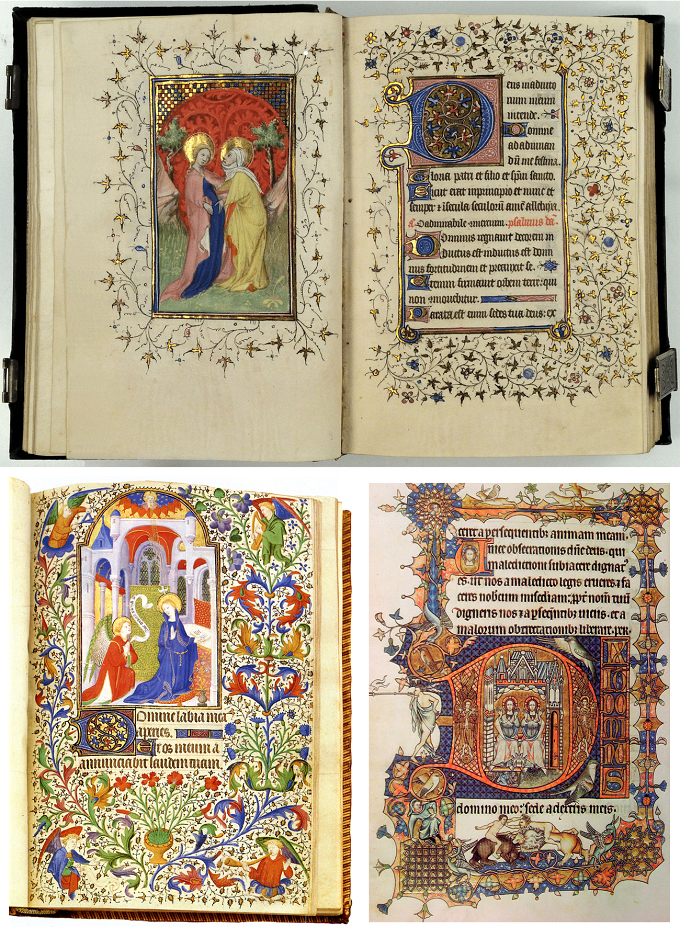 Deus in adiuto
rium meum
intende.
Domine
ad adiuuan
dū me festina.
Gloria patri et filio et spūi sancto.
Sicut erat in principio et nunc et
semper et ī secula seculorū amē alleluya.
O admirabile psalmus dd.
Dominus regnauit decorem in
dutus est indutus est domi
nus fortitudinem et precinxit se.
Etenim firmauit orbem terre: qui
non mouebitur.
Parata est enim sedes tua deus: ex
Domine labia mea
aperies.
Et os meum a
annunciabit laudem tuam.
a persequentibus animam meam.
obsecrationis dñe deus. qui
maledictioni subiacere dignat
es. ut nos a maledicto legis
ceres nobcum
digneris nos
malorum
D
domino meo: sede a dextris meis.